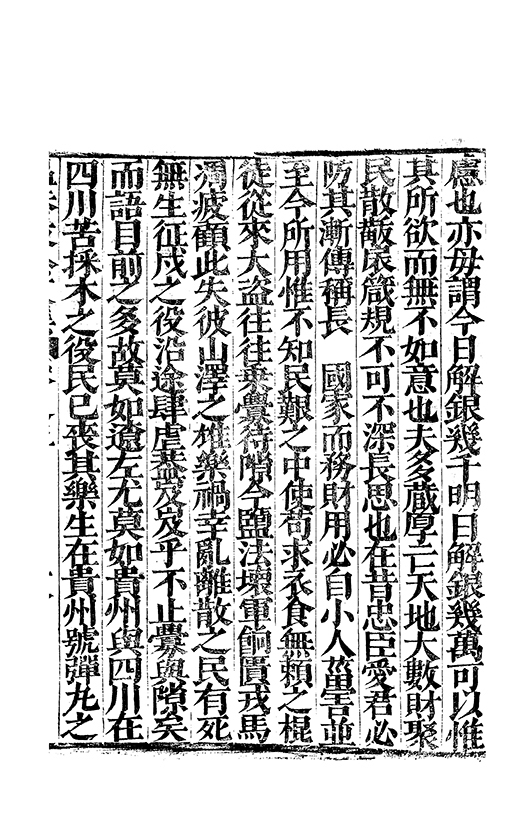 慮也亦毋謂今日解銀幾千明日解銀幾萬可以惟
其所欲而無不如意也夫多藏厚亡天地大數財聚
民散敵扆箴規不可不深長思也在昔忠臣愛君必
防其漸傳稱長　國家而務財用必自小人菑害並
至今所用惟不知民艱之中使苟求衣食無賴之棍
徒從來大盜往往乘釁待隙今鹽法壞軍餉匱戎馬
凋疲顧此失彼山澤之雄樂禍幸亂離散之民有死
無生征戍之役沿途肆虐葢岌岌乎不止釁與隙矣
而語目前之多故莫如遼左尤莫如貴州與四川在
四川苦採木之役民已喪其樂生在貴州號彈丸之